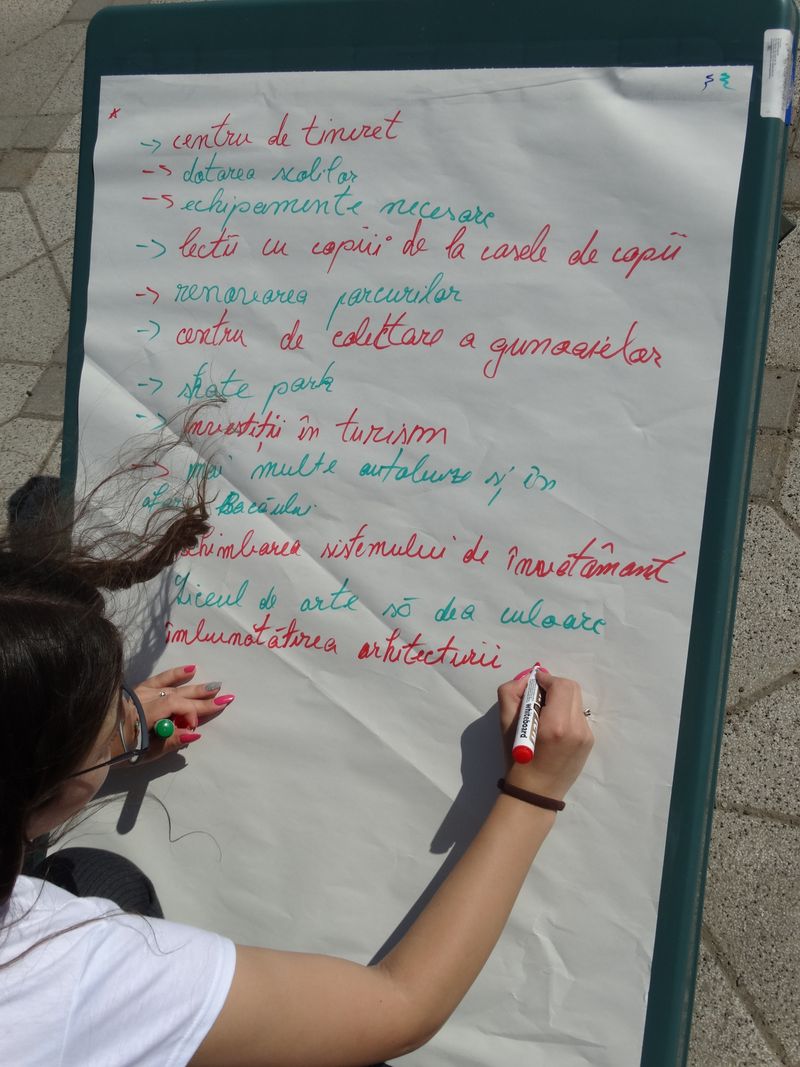 * -> centru de tineret
-> dotarea scolilor
-> echipamente necesare
-> lectii cu copiii de la casele de copii
-> renovarea parcurilor
-> centru de colettare a gunoaielor
-> skate park
-> investiții în turism
-> mai multe autobuze și în
Bacăului
schimbarea sistemului de învătâmant
Liceul de arte să dea culoare
îmbunatătirea arhitecturii
whiteboard